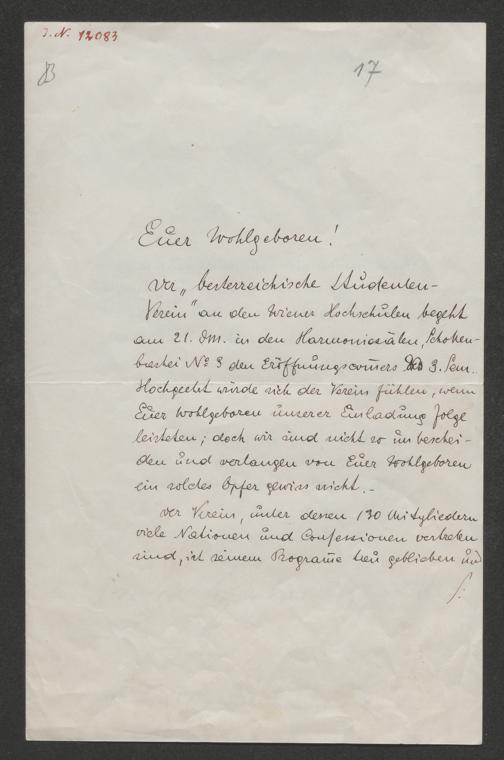 J. N. 12083
17
Euer Wohlgeboren!
Der „Oesterreichische Studenten-
Verein" an den Wiener Hochschulen begeht
am 21. dM. in den Harmoniesälen, Schotten-
bastei No 3 den Eröffnungscom̅ers des 3. Sem.
Hochgeehrt würde sich der Verein fühlen, wenn
Euer Wohlgeboren unserer Einladung Folge
leisteten; doch wir sind nicht so unbeschei-
den und verlangen von Euer Wohlgeboren
ein solches Opfer gewiss nicht.-
Der Verein, unter dessen 130 Mitgliedern
viele Nationen und Confessionen vertreten
sind, ist seinem Program̅e treu geblieben und